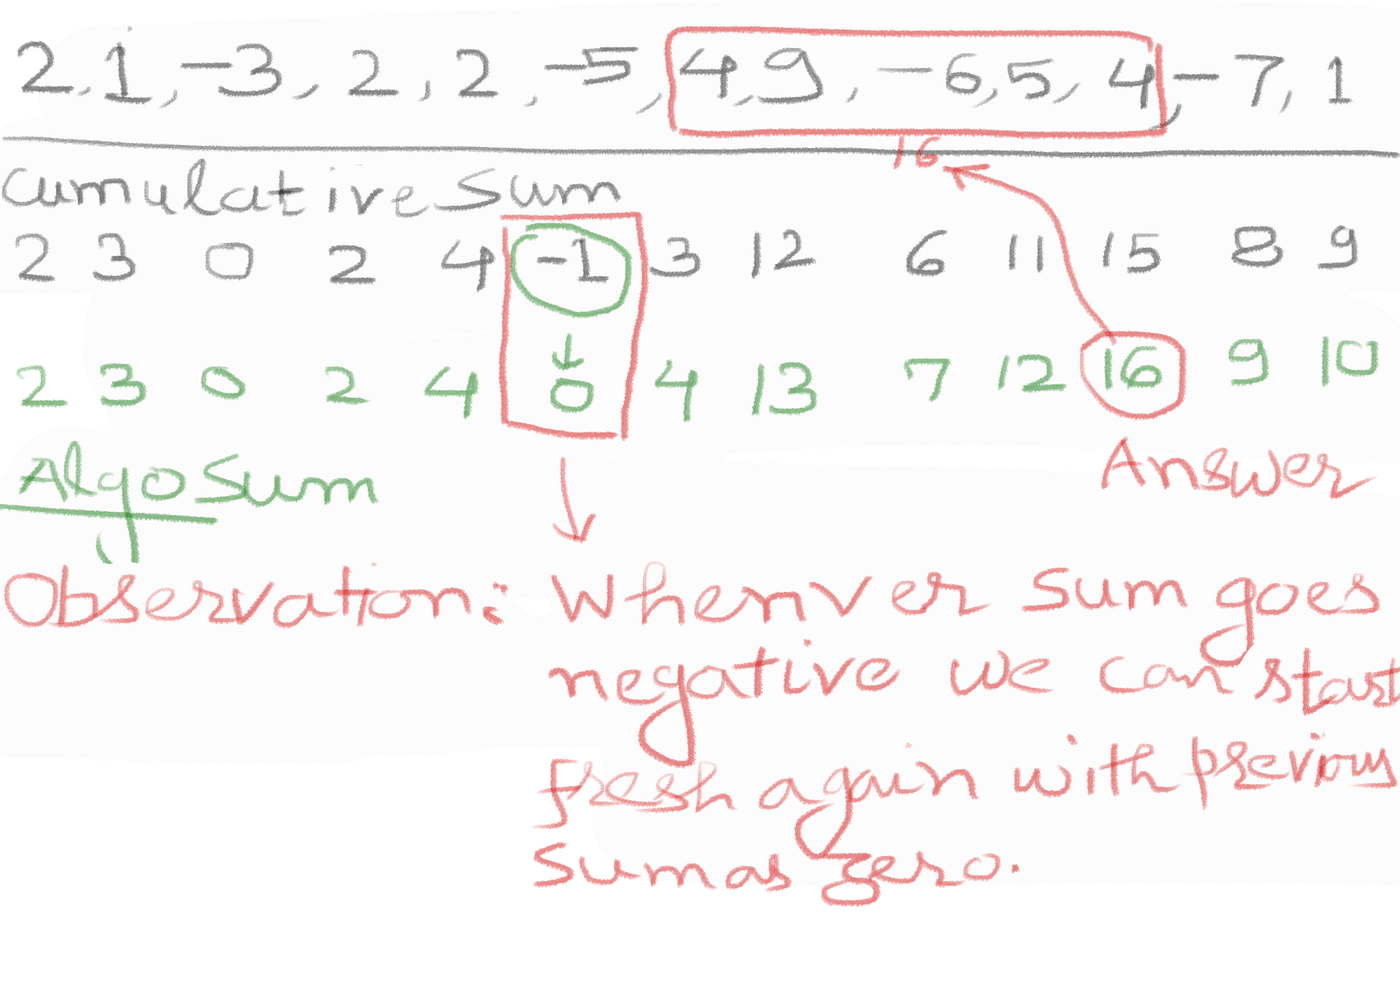 2, 1, -3, 2, 2, -5, 4, 9, -6, 5, 4, -7, 1
16
Cumulative Sum
2 3 0 2 4 -1 3 12 6 11 15 8 9
2 3 0 2 4 0 4 13 7 12 16 9 10
Algo Sum
Answer
Observation: Whenver sum goes
negative we can start
fresh again with previous
sum as zero.